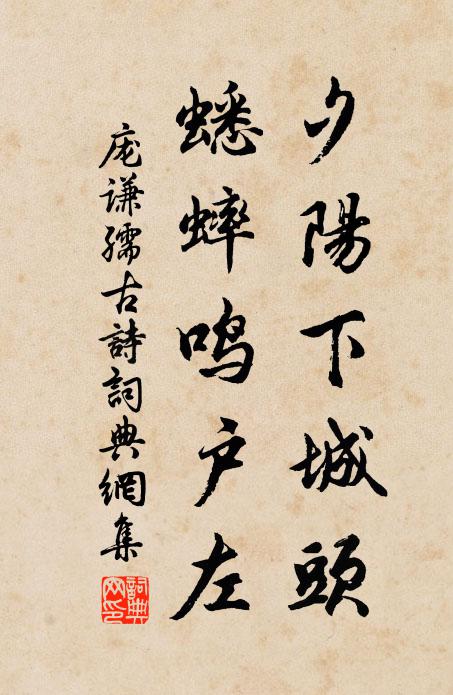 夕陽下城頭
蟋蟀鸣户左
庞谦孺古詩詞典網集
詞典网印